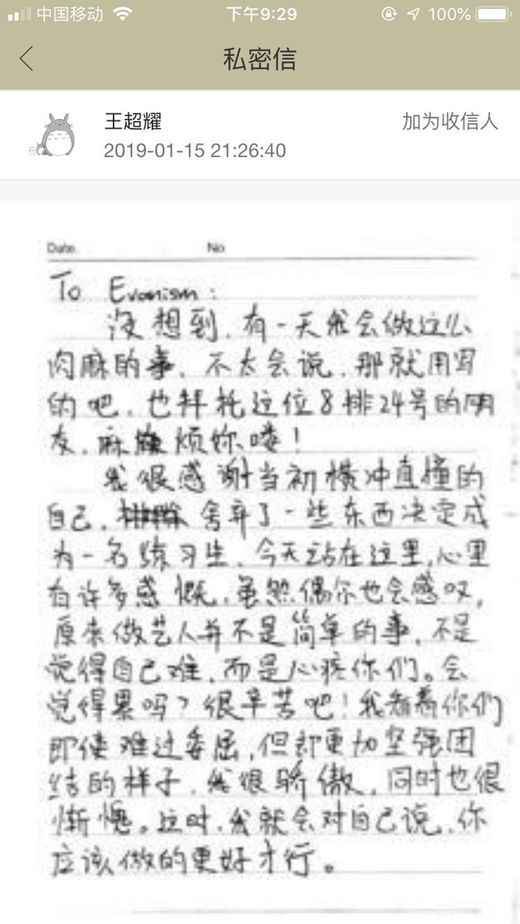 中国移动 下午9:29 100%
私密信
王超耀 加为收信人
2019-01-15 21:26:40
Date. No.
To Evonism：
没想到，有一天我会做这么
肉麻的事，不太会说，那就用写
的吧，也拜托这位8排24号的朋
友，麻烦妳喽！
我很感谢当初横冲直撞的
自己，舍弃了一些东西决定成
为一名练习生，今天站在这里，心里
有许多感慨，虽然偶尔也会感叹，
原来做艺人并不是简单的事，不是
觉得自己难，而是心疼你们。会
觉得累吗？很辛苦吧！我看着你们
即使难过委屈，但却更加坚强团
结的样子，我很骄傲，同时也很
惭愧。这时，我就会对自己说，你
应该做的更好才行。